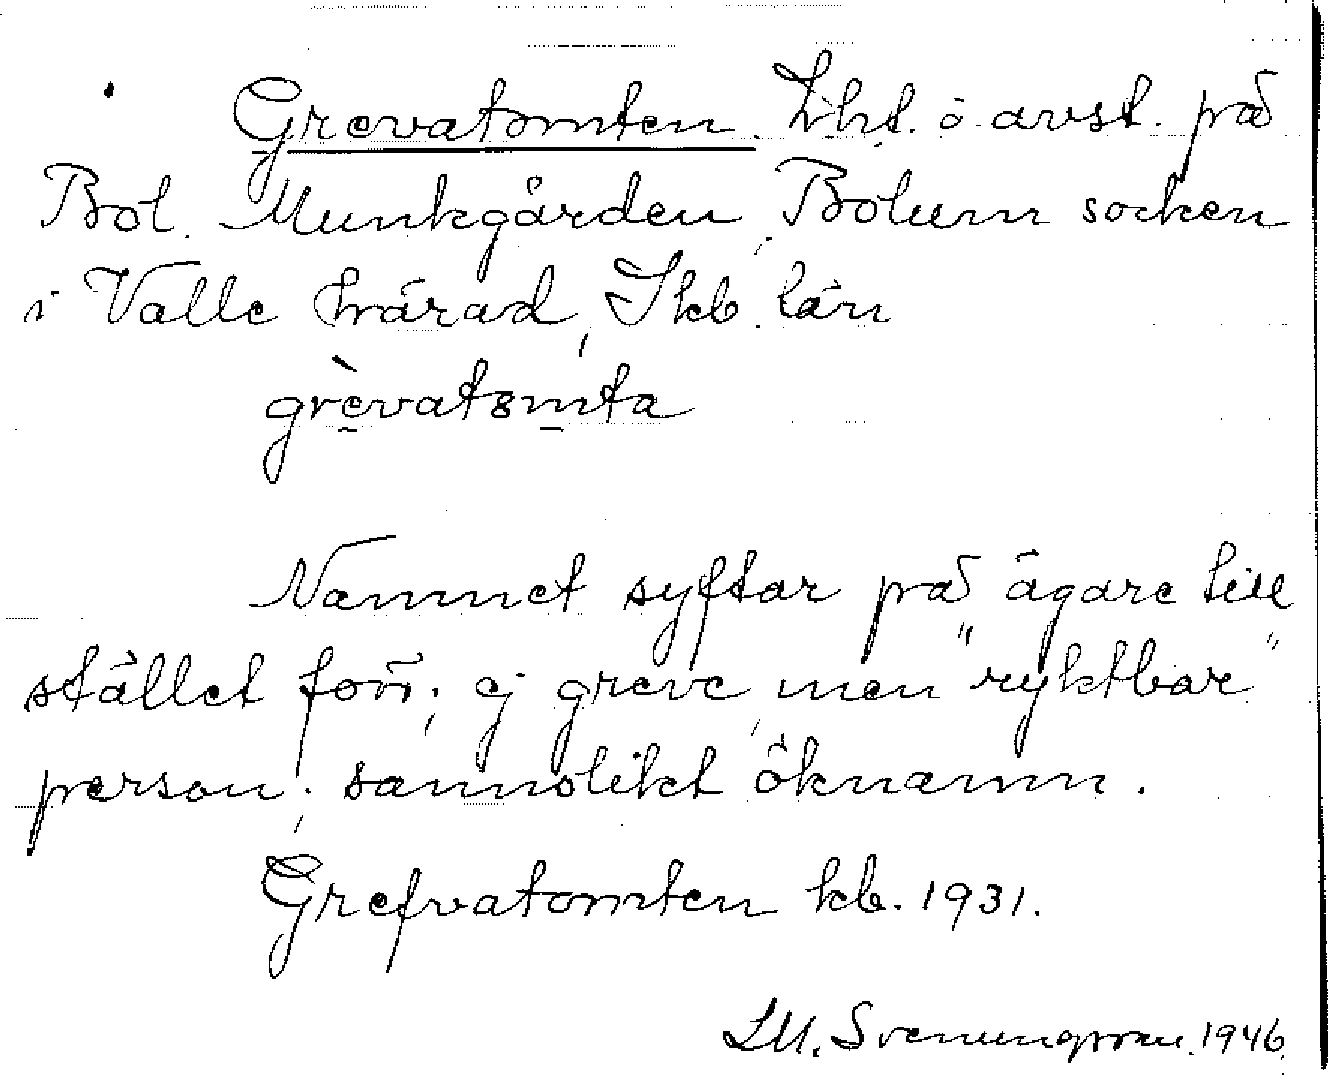 Grevatomten. Lht. ö avst. på
Bol. Munkgården, Bolum socken
i Valle härad, Skb. län
grèvatȣmta
Namnet syftar på ägare till
stället förr; ej greve, men "ryktbar"
person; sannolikt öknamn.
Grefvatomten kb. 1931.
LM. Svenungsson. 1946